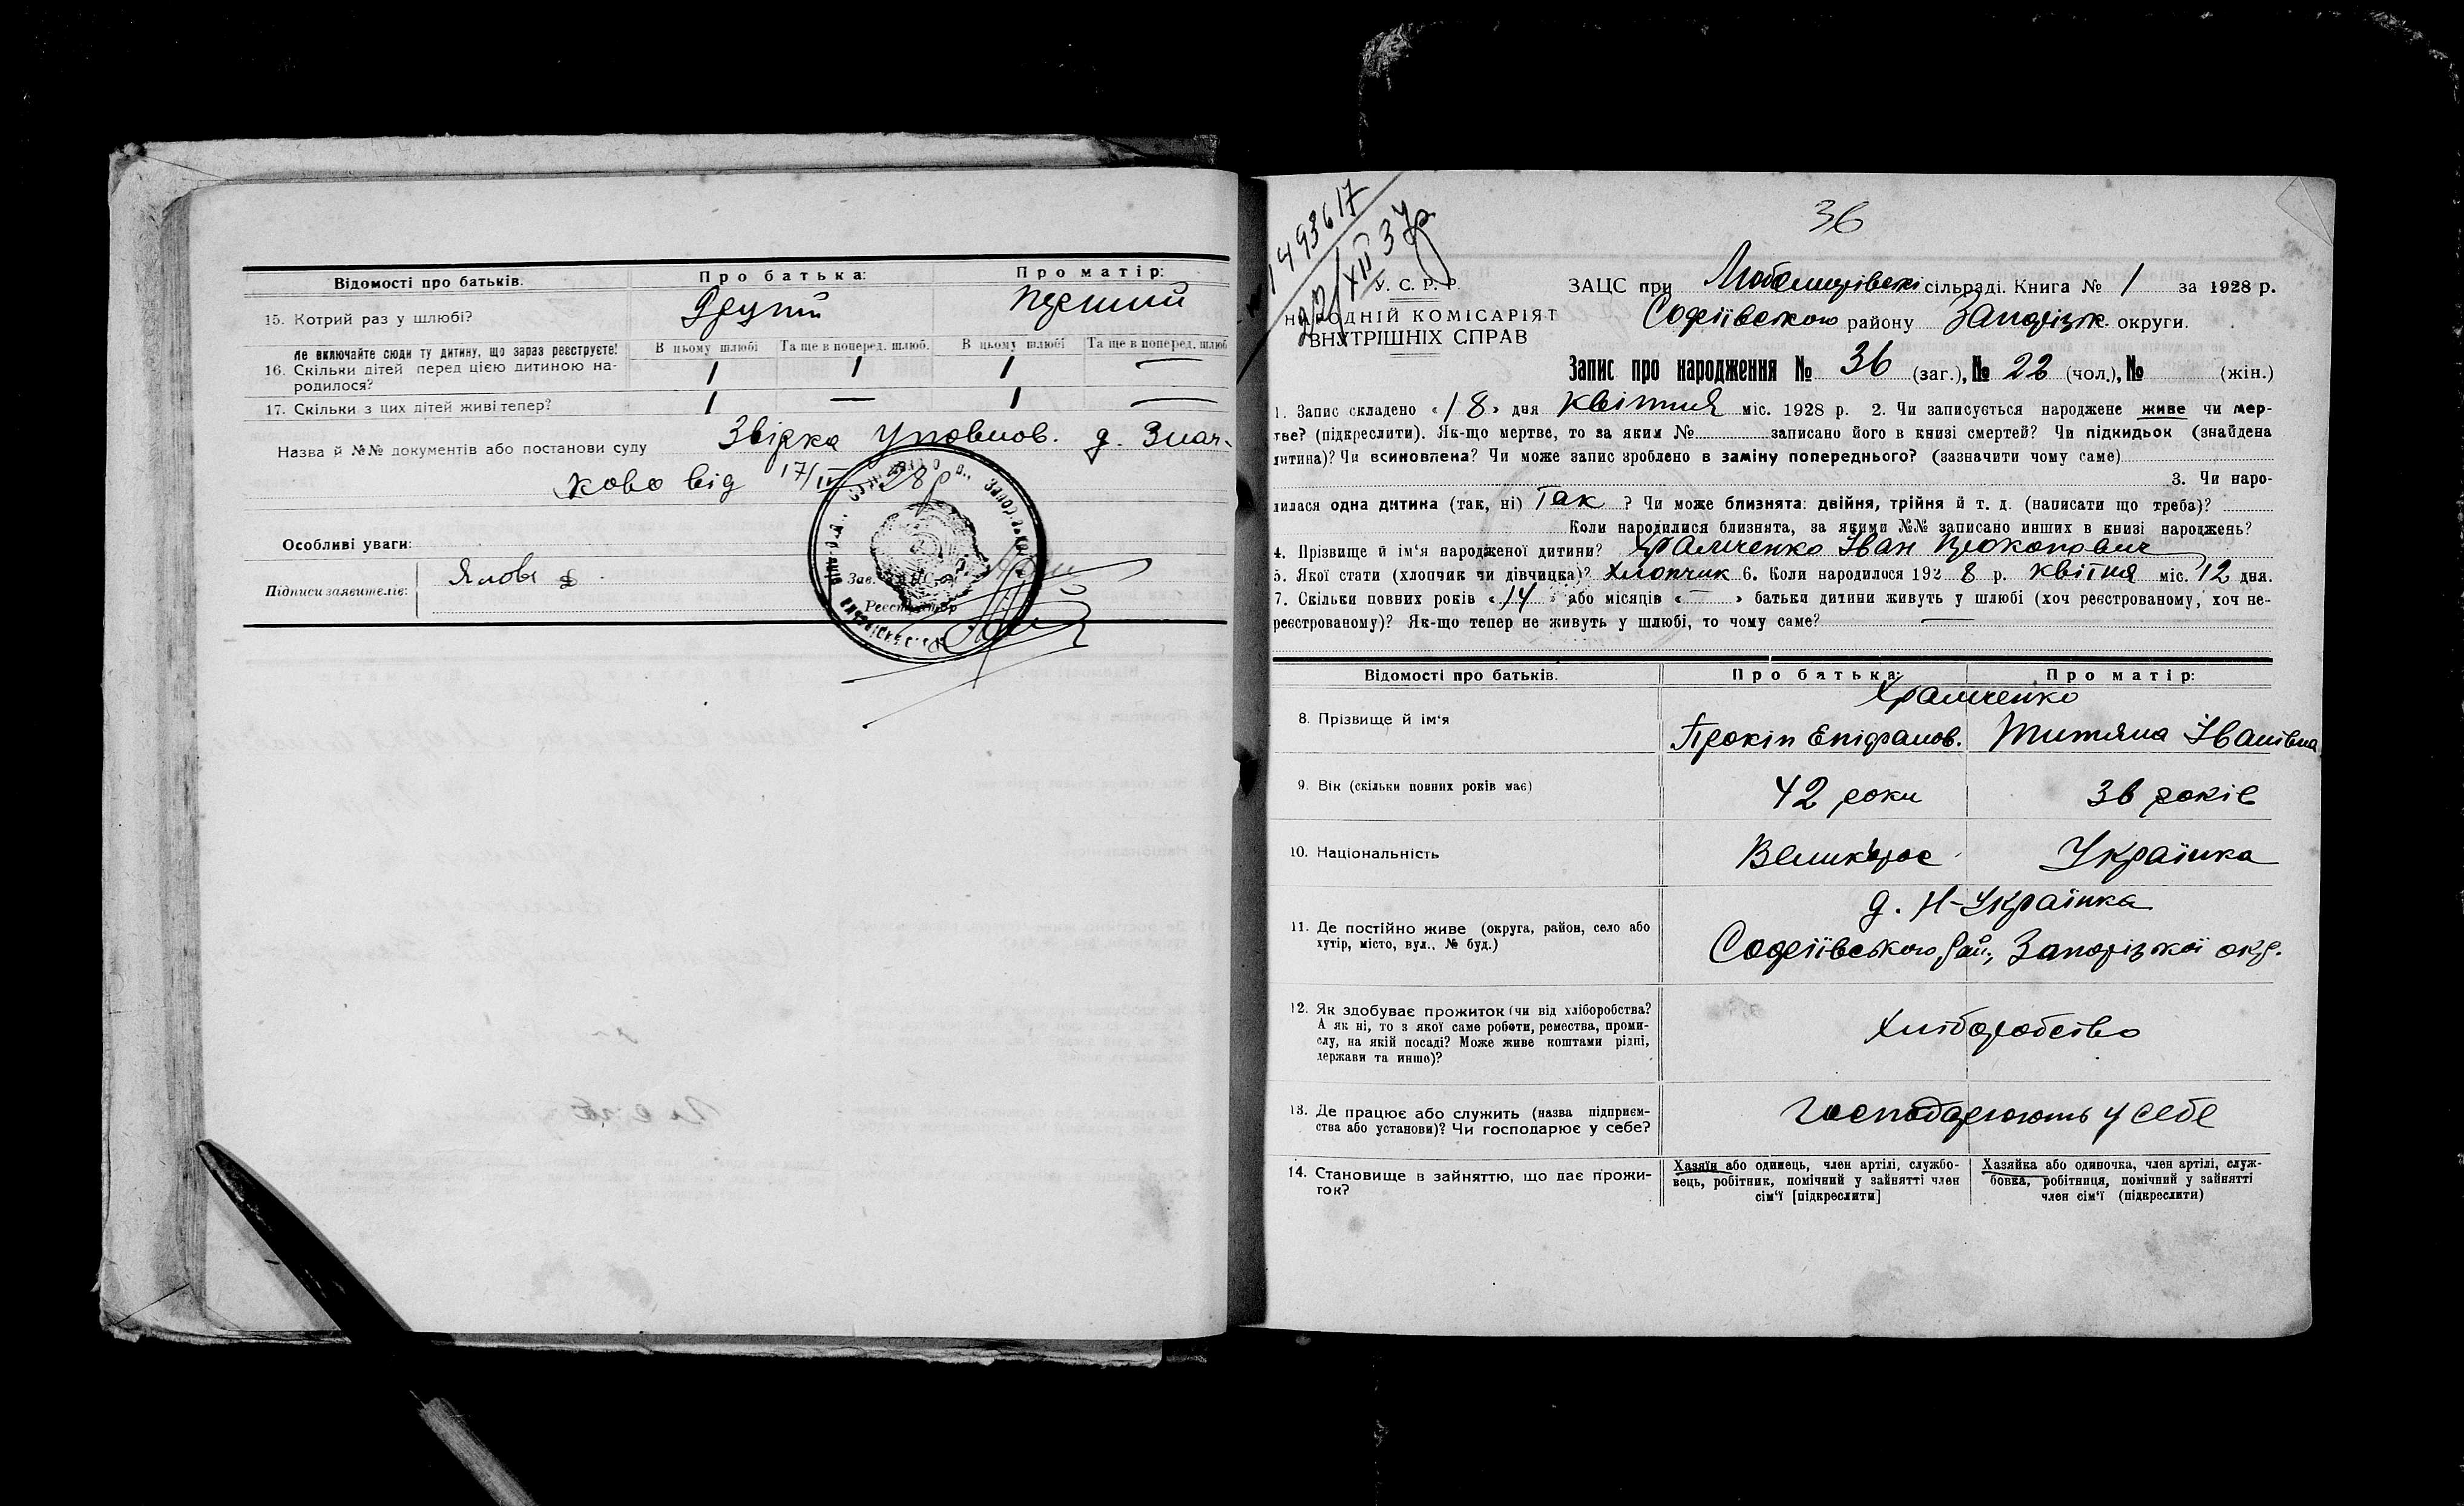 Відомості про батьків. Про батька: Про матір:
15. Котрий раз у шлюбі? Другий Перший
Не включайте сюди ту дитину, що зараз реєструєте! В цьому шлюбі Та ще в поперед. шлюб. В цьому шлюбі Та ще в поперед. шлюб
16. Скільки дітей перед цією дитиною на- 1 1 1 —
родилося?
17. Скільки з цих дітей живі тепер? 1 — 1 —
Назва й №№ документів або постанови суду Звідка Уповнов. д. Знач-
ково від 17/IV 28 р
Особливі уваги:
Підписи заявителів:
Зав.
Реєстратор
1493617
XII 37р
36
У. С. Р. Р.
НАРОДНІЙ КОМІСАРІЯТ
ВНУТРІШНІХ СПРАВ
ЗАЦС при Любимирівські сільраді. Книга № 1 за 1928 р.
Софіївського району Запоріж. округи.
Запис про народження № 36 (заг.), № 22 (чол.), № (жін.)
1. Запис складено «18» дня квітня міс. 1928 р. 2. Чи записується народжене живе чи мер-
тве? (підкреслити). Як-що мертве, то за яким № записано його в книзі смертей? Чи підкидьок (знайдена
дитина)? Чи всиновлена? Чи може запис зроблено в заміну попереднього? (зазначити чому саме)
3. Чи наро-
дилася одна дитина (так, ні) Так ? Чи може близнята: двійня, трійня й т. д. (написати що треба)?
Коли народилися близнята, за якими №№ записано инших в книзі народжень?
4. Прізвище й ім'я народженої дитини? Храмченко Іван Прокопович
5. Якої стати (хлопчик чи дівчицка)? Хлопчик 6. Коли народилося 1928 р. квітня міс. 12 дня.
7. Скільки повних років «14» або місяців «—» батьки дитини живуть у шлюбі (хоч реєстрованому, хоч не-
реєстрованому)? Як-що тепер не живуть у шлюбі, то чому саме? —
Відомості про батьків. Про батька: Про матір:
Храмченко
8. Прізвище й ім'я Прокіп Епіфанов. Титяна Іванівна
9. Вік (скільки повних років має) 42 роки 36 років
10. Національність Великорос Українка
д. Н-Українка
11. Де постійно живе (округа, район, село або
хутір, місто, вул., № буд.) Софіївського, рай., Запорізької окр.
12. Як здобуває прожиток (чи від хліборобства?
А як ні, то з якої саме роботи, ремества, проми-
слу, на якій посаді? Може живе коштами рідні,
держави та инше)? Хліборобство
13. Де працює або служить (назва підприєм-
ства або установи)? Чи господарює у себе? Господарюють у себе
14. Становище в зайняттю, що дає прожи-
ток?
Хазяїн або одинець, член артілі, службо-
вець, робітник, помічний у зайнятті член
сім'ї [підкреслити]
Хазяйка або одиночка, член артілі, служ-
бовка, робітниця, помічний у зайнятті
член сім'ї (підкреслити)